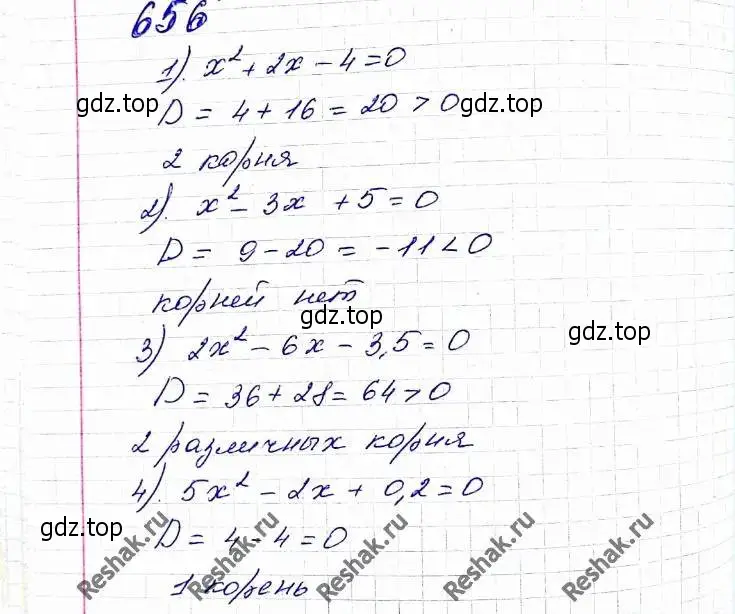 656
1). x² + 2x – 4 = 0
gdz.top D = 4 + 16 = 20 > 0 gdz.top
2 корня
2). x² – 3x + 5 = 0
D = 9 – 20 = –11 < 0
корней нет
gdz.top
3) 2x² – 6x – 3,5 = 0 gdz.top
D = 36 + 28 = 64 > 0
2 различных корня
4). 5x² – 2x + 0,2 = 0
gdz.top D = 4 – 4 = 0
1 корень
Reshak.ru Reshak.ru Reshak.ru Reshak.ru